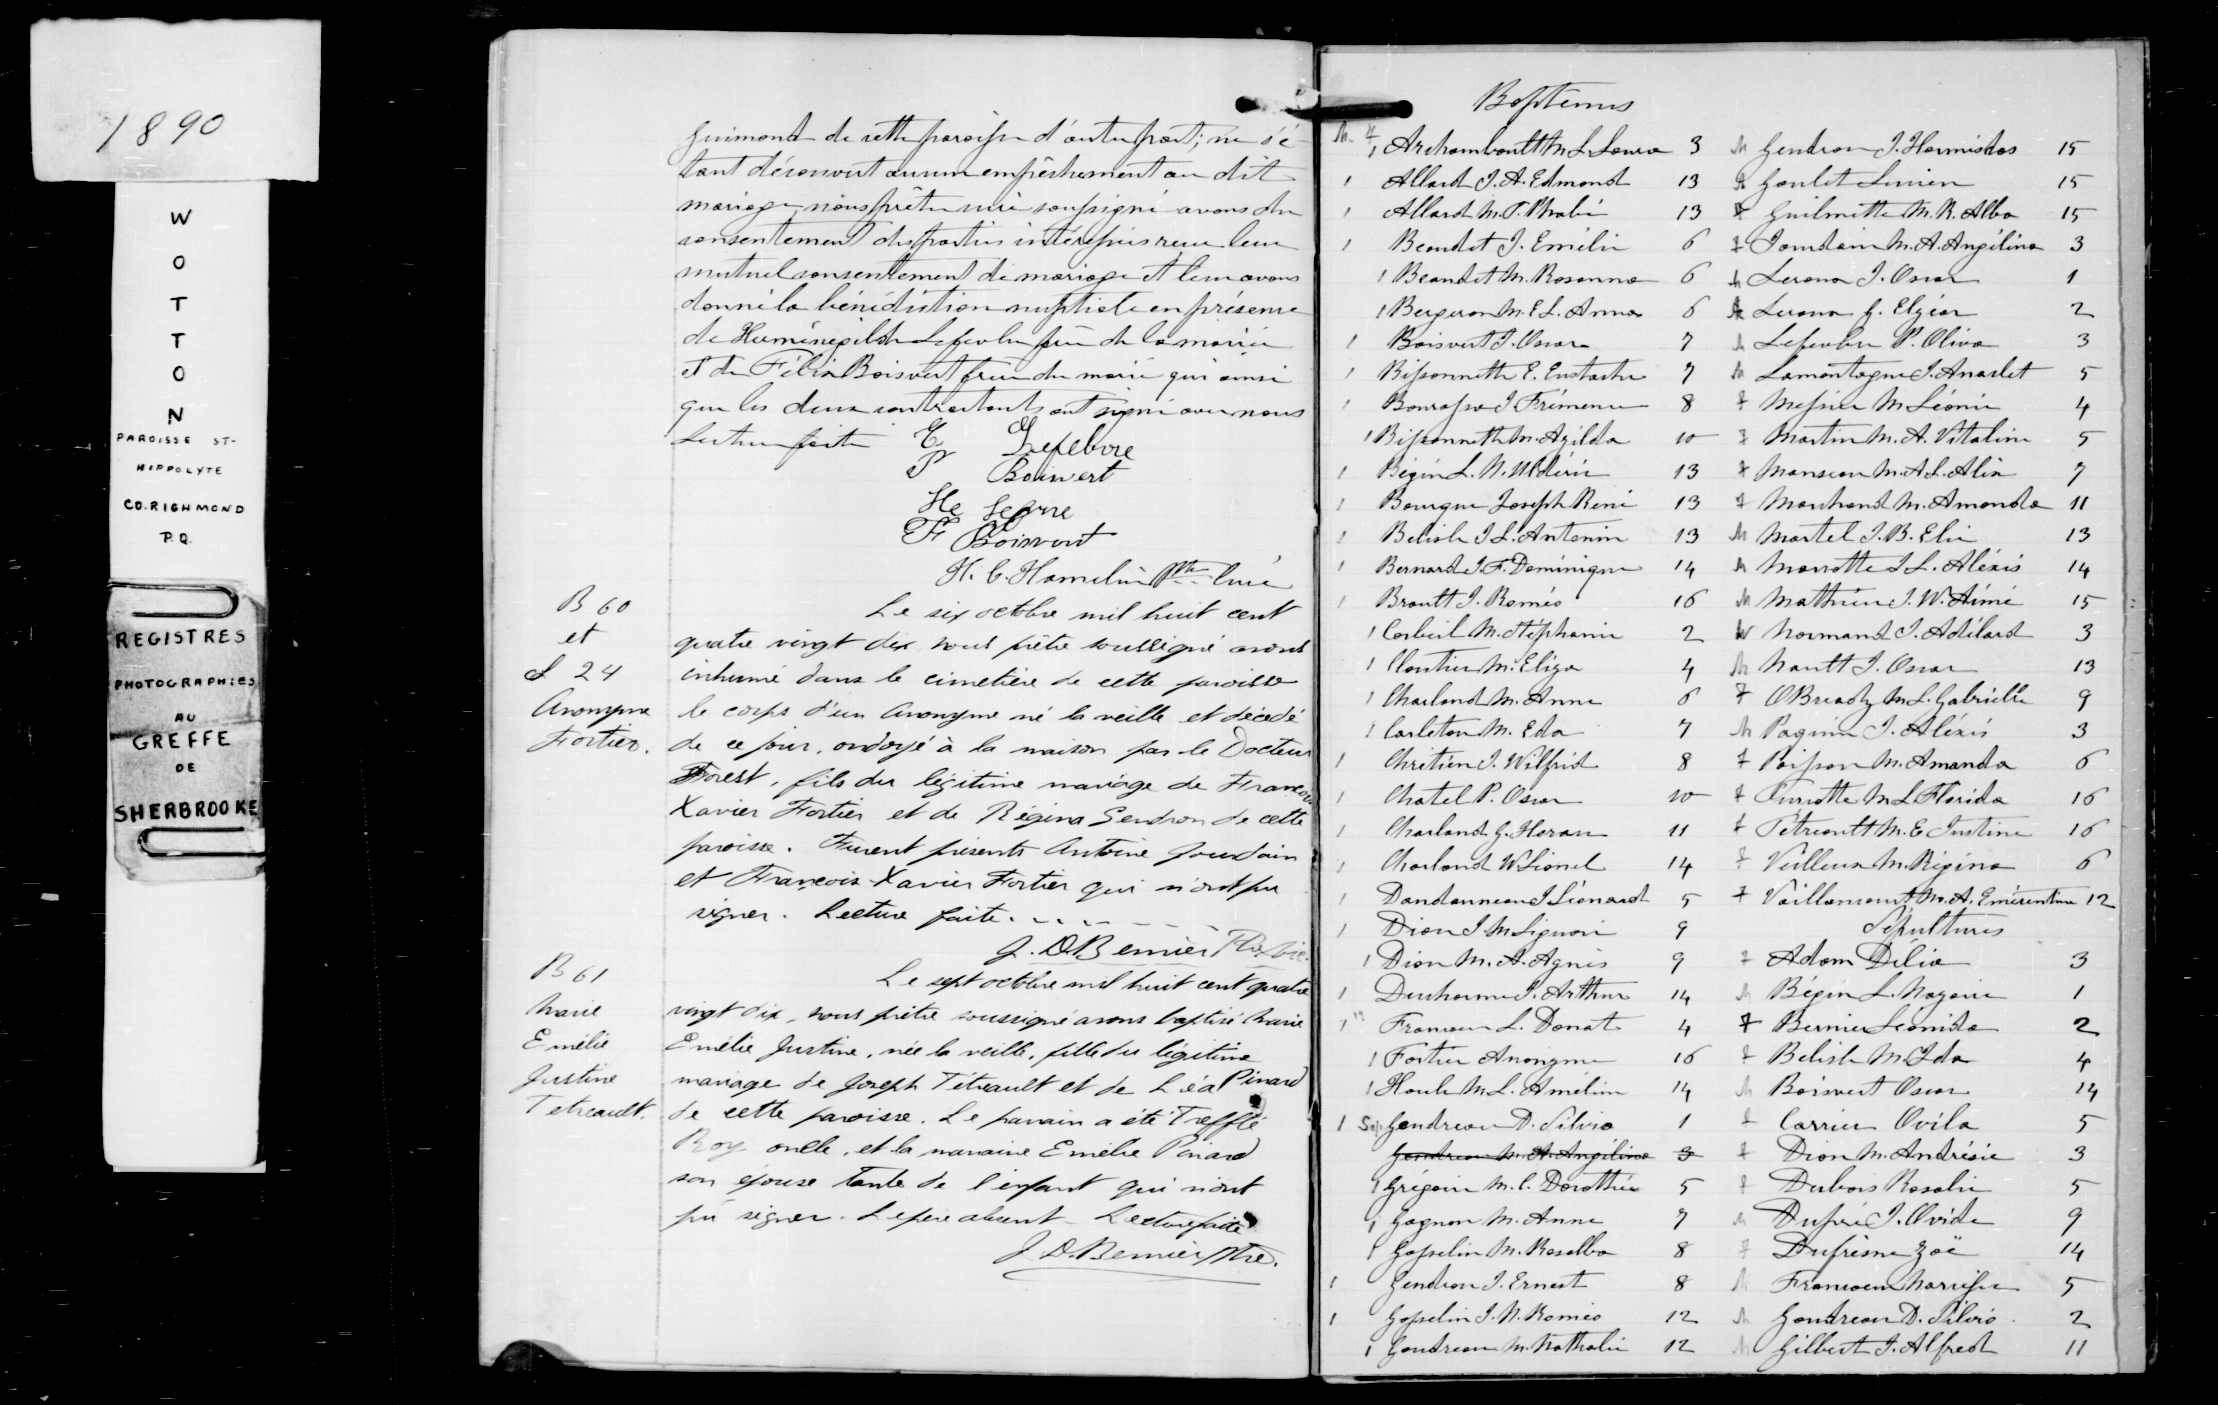 1890
WOTTON
PAROISSE ST-
HIPPOLYTE
CO. RICHMOND
P.Q.
REGISTRES
PHOTOGRAPHIES
AU
GREFFE
DE
SHERBROOKE
Guimond de cette paroisse d'autre part; ne s'é-
tant découvert aucun empêchement au dit
mariage, nous prêtre curé soussigné avons du
consentement des parties intéressées reçu leur
mutuel consentement de mariage et leur avons
donné la bénédiction nuptiale en présence
de Herménégilde Lefebvre père de la mariée
et de Félix Boisvert frère du marié qui ainsi
que les deux contractants ont signé avec nous
Lecture faite E Lefebvre
P Boisvert
He
F Boisvert
H. C. Hamelin Ptre Curé
B 60
et
S 24
Anonyme
Fortier.
Le six octobre mil huit cent
quatre vingt dix nous prêtre soussigné avons
inhumé dans le cimetière de cette paroisse
le corps d'un Anonyme né la veille et décédé
de ce jour, ondoyé à la maison par le Docteur
Forest, fils du légitime mariage de François
Xavier Fortier et de Régina Gendron de cette
paroisse. Furent présents Antoine Jourdain
et François-Xavier Fortier qui n'ont pu
signer. Lecture faite.
J. D. Bernier Ptre Vic.
B 61
Marie
Emélie
Justine
Tetreault.
Le sept octobre mil huit cent quatre
vingt dix, nous prêtre soussigné avons baptisé Marie
Emélie Justine, née la veille, fille du légitime
mariage de Joseph Tétreault et de Léa Pinard
de cette paroisse. Le parrain a été Trefflé
Roy oncle, et la marraine Emélie Pinard
son épouse tante de l'enfant qui n'ont
pu signer. Le père absent - Lecture faite
J. D. Bernier Ptre.
Baptêmes
M. F
1 Archambault M. L. Laura 3
1 Allard J. A. Edmond 13
1 Allard M. T. 13
1 Beaudet J. Emélie 6
1 Beaudet M. Rosanna 6
1 Bergeron M. E. L. Anna 6
1 Boisvert J. Oscar 7
1 Bissonnette E. Eustache 7
1 Bourassa J. 8
1 Bissonnette M. Azilda 10
1 Bégin L. N. 13
1 Bourque Joseph René 13
1 Belisle J. L. Antonin 13
1 Bernard J. F. Dominique 14
1 Brault J. Roméo 16
1 Corbeil M. Stéphanie 2
1 Cloutier M. Eliza 4
1 Charland M. Anne 6
1 Carleton M. Eda 7
1 Chrétien J. Wilfrid 8
1 Chatel P. Oscar 10
1 Charland G. 11
1 Charland W. Lionel 14
1 Dandonneau J. Léonard 5
1 Dion J. M. Liguori 9
1 Dion M. A. Agnès 9
1 Ducharme J. Arthur 14
1 Francoeur L. Donat 4
1 Fortier Anonyme 16
1 Houle M. L. Amélie 14
1 Sep Gendreau D. Silvio 1
Gendreau M. A. Angélina 3
1 Grégoire M. C. Dorothée 5
1 Gagnon M. Anne 7
1 Gosselin M. Rosalba 8
1 Gendron J. Ernest 8
1 Gosselin J. N. Roméo 12
1 Gendreau M. Nathalie 12
M Gendron J. Hormisdas 15
M Goulet Lucien 15
F Guilmette M. R. Alba 15
F Jourdain M. A. Angélina 3
M J. Oscar 1
M G. Elzéar 2
M Lefebvre P. Oliva 3
M Lamontagne J. Anaclet 5
F Messier M. Léonie 4
F Martin M. A. Vitaline 5
F Manseau M. A. L. 7
F Marchand M. Amanda 11
M Martel J. B. Elie 13
M Marcotte J. L. Aléxis 14
M Mathieu J. W. Aimé 15
M Normand J. Adélard 3
M Nault J. Oscar 13
F OBready M. L. Gabrielle 9
M Paquin J. Aléxis 3
F Poisson M. Amanda 6
F Turcotte M. L. Florida 16
F Tétreault M. E. Justine 16
F Veilleux M. Régina 6
F Vaillancourt M. A. Emérentine 12
Sépultures
F Adam Délia 3
M Bégin L. Nazaire 1
F Bernier Léonida 2
F Belisle M. Ida 4
M Boisvert Oscar 14
F Carrier Ovila 5
F Dion M. Andrésie 3
F Dubois Rosalie 5
M Dupré J. Ovide 9
F Dufresne Zoë 14
M Francoeur Narcisse 5
M Gendreau D. Silvio 2
M Gilbert J. Alfred 11